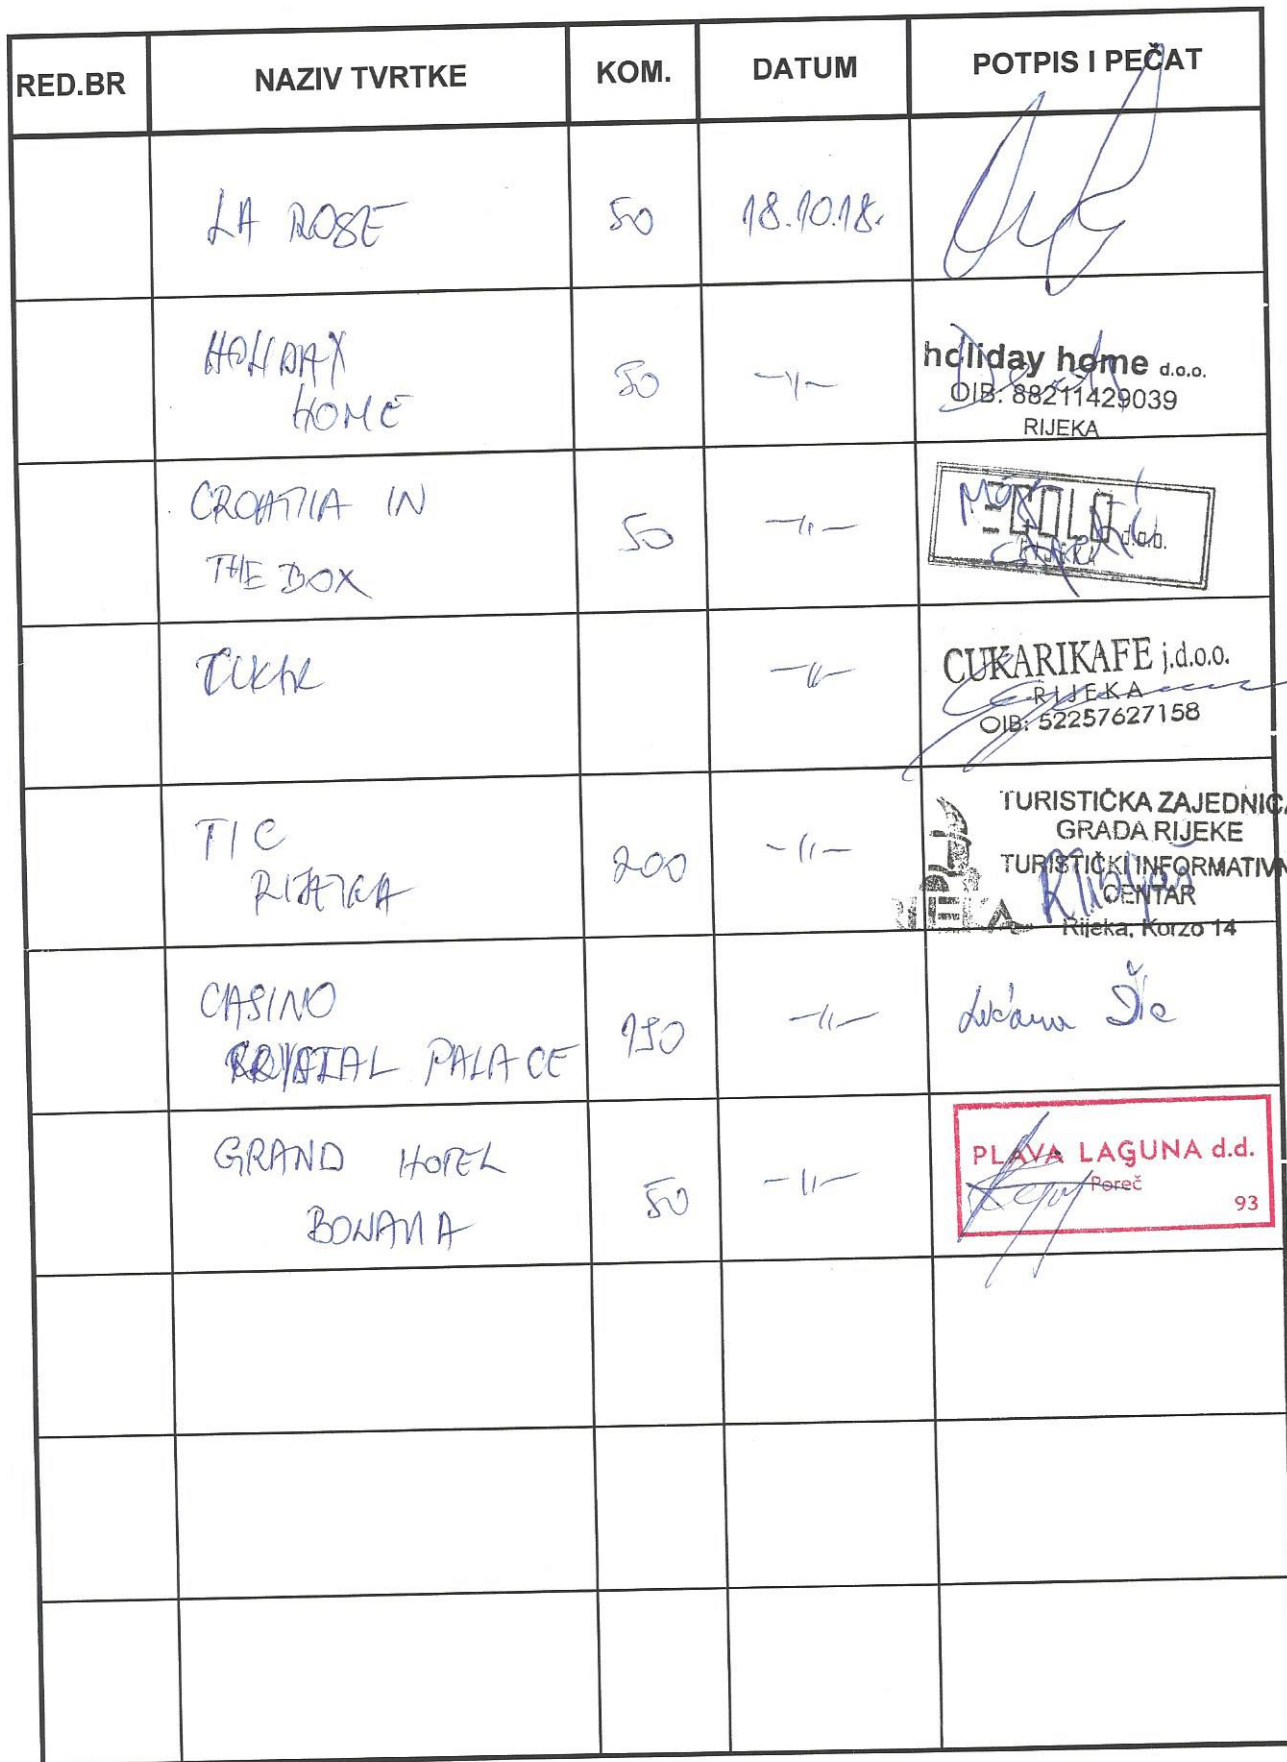 RED.BR NAZIV TVRTKE KOM. DATUM POTPIS I PEČAT
LA ROSE 50 18.10.18.
HOLIDAY
HOME 50 -||-
holiday home d.o.o.
OIB: 88211429039
RIJEKA
CROATIA IN
THE BOX 50 -||-
d.o.o.
CUKAR -||-
CUKARIKAFE j.d.o.o.
RIJEKA
OIB: 52257627158
TIC
RIJEKA 200 -||-
TURISTIČKA ZAJEDNICA
GRADA RIJEKE
TURISTIČKI INFORMATIVN
CENTAR
Rijeka, Korzo 14
RIJEKA
CASINO
KRYSTAL PALACE 150 -||-
GRAND HOTEL
BONAVIA 50 -||-
PLAVA LAGUNA d.d.
Poreč
93